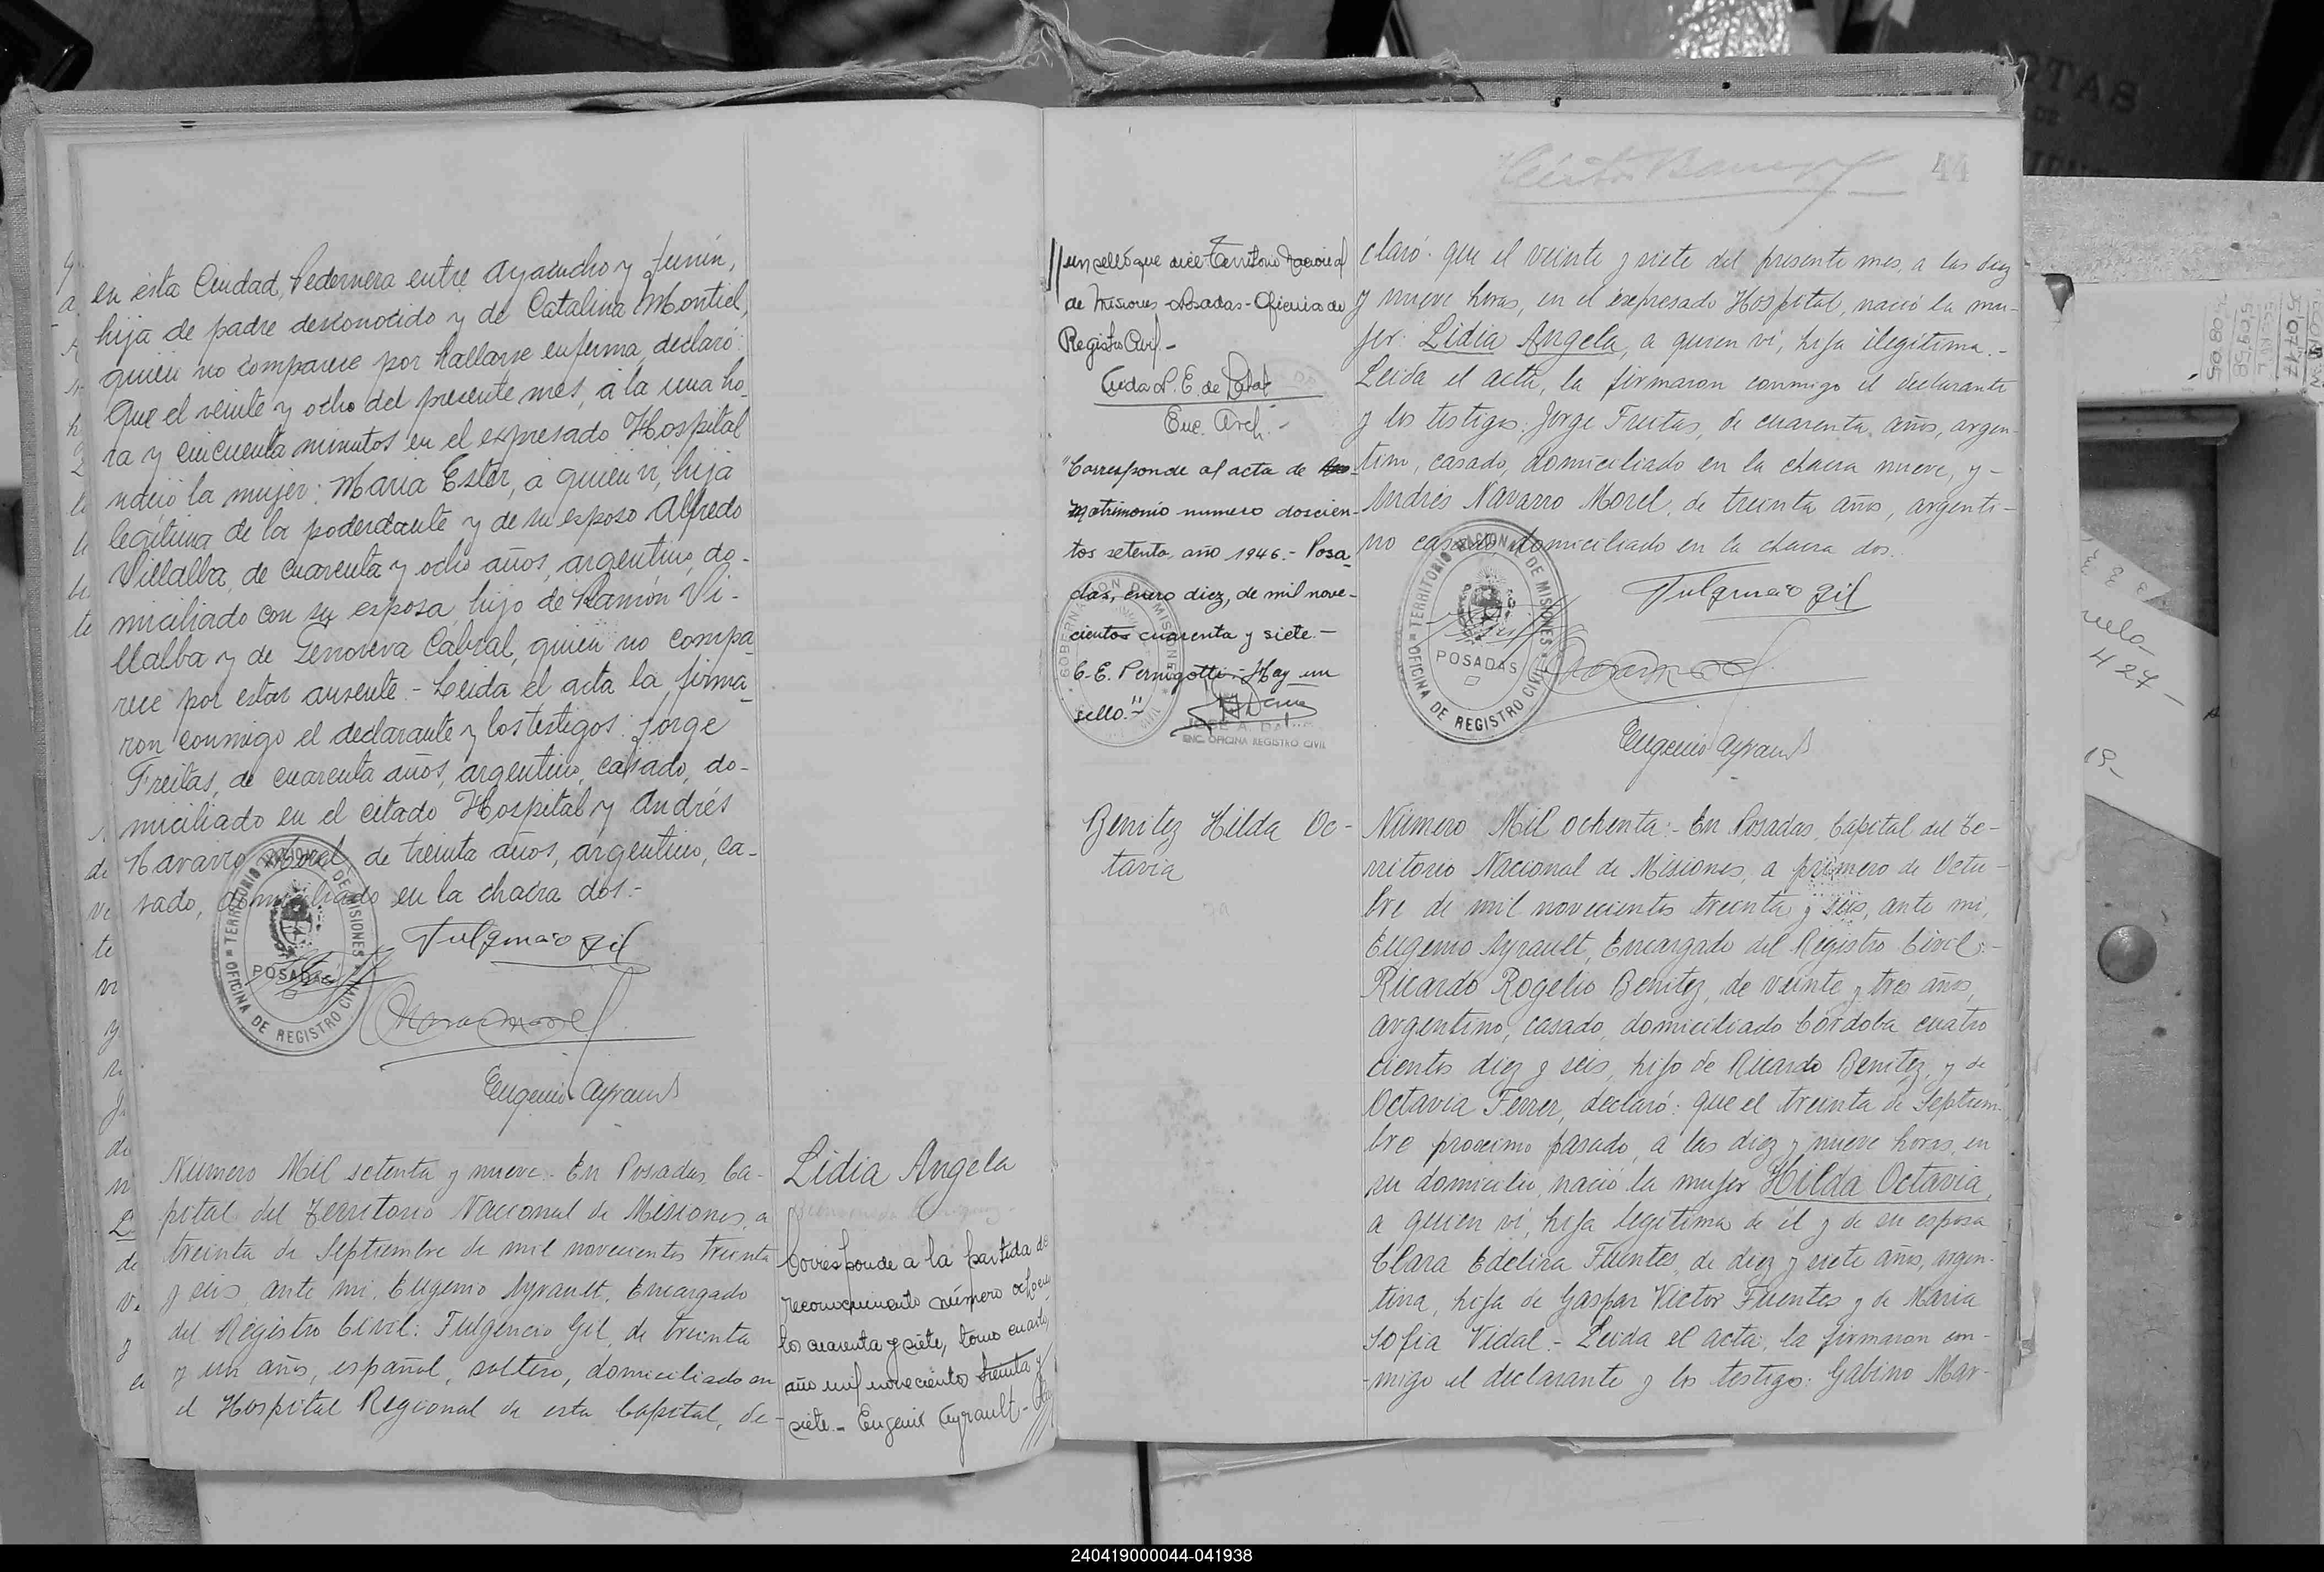 en esta Ciudad, Pedernera entre Ayacucho y Junin,
hija de padre desconocido y de Catalina Montiel,
quien no comparece por hallarse enferma, declaró:
Que el veinte y ocho del presente mes, á la una ho-
ra y cincuenta minutos en el expresado Hospital
nació la mujer: Maria Ester, á quien vi, hija
legitima de la poderdante y de su esposo Alfredo
Villalba, de cuarenta y ocho años, argentino, do-
miciliado con su esposa, hijo de Ramón Vi-
llalba y de Genoveva Cabral, quien no compa-
rece por estar ausente.- Leida el acta la firma-
ron conmigo el declarante y los testigos: Jorge
Freitas, de cuarenta años, argentino, casado, do-
miciliado en el citado Hospital y Andrés
Navarro Morel, de treinta años, argentino, ca-
sado, domiciliado en la chacra dos.-
TERRITORIO NACIONAL DE MISIONES
POSADAS
OFICINA DE REGISTRO CIVIL
Fulgencio Gil
Eugenio Ayrault
Número Mil setenta y nueve.- En Posadas, Ca-
pital del Territorio Nacional de Misiones, a
treinta de Septiembre de mil novecientos treinta
y seis, ante mi, Eugenio Ayrault, Encargado
del Registro Civil: Fulgencio Gil, de treinta
y un años, español, soltero, domiciliado en
el Hospital Regional de esta Capital, de-
Lidia Angela
Corresponde a la partida de
reconocimiento número ochocien
tos cuarenta y siete, tomo cuarto,
año mil novecientos treinta y
siete.- Eugenio Ayrault-
44
//un sello que dice Territorio Nacional
de Misiones Posadas- Oficina de
Registro Civil-
Enc. Arch.-
"Corresponde al acta de
matrimonio numero doscien-
tos setenta, año 1946.- Posa-
das, enero diez, de mil nove-
cientos cuarenta y siete.-
C.E. Pernigotti.- Hay un
sello."-
GOBERNACION DE MISIONES
JOSÉ A.
ENC. OFICINA REGISTRO CIVIL
claró: que el veinte y siete del presente mes, a las diez
y nueve horas, en el expresado Hospital, nació la mu-
jer: Lidia Angela, a quien vi, hija ilegítima.-
Leida el acta, la firmaron conmigo el declarante
y los testigos: Jorge Freitas, de cuarenta años, argen-
tino, casado, domiciliado en la chacra nueve, y-
Andrés Navarro Morel, de treinta años, argenti-
no casado domiciliado en la chacra dos.
TERRITORIO NACIONAL DE MISIONES
POSADAS
OFICINA DE REGISTRO CIVIL
Fulgencio Gil
Eugenio Ayrault
Benitez Hilda Oc-
tavia
Número Mil ochenta:- En Posadas, Capital del Te-
rritorio Nacional de Misiones, a primero de Octu-
bre de mil novecientos treinta y seis, ante mi,
Eugenio Ayrault, Encargado del Registro Civil:-
Ricardo Rogelio Benitez, de veinte y tres años,
argentino, casado, domiciliado Córdoba cuatro
cientos diez y seis, hijo de Ricardo Benitez, y de
Octavia Ferrer, declaró: que el treinta de Septiem-
bre proximo pasado, a las diez y nueve horas, en
su domicilio, nació la mujer Hilda Octavia,
a quien vi, hija legitima de él y de su esposa
Clara Edelira Fuentes, de diez y siete años, argen-
tina, hija de Gaspar Victor Fuentes y de Maria
Sofia Vidal.- Leida el acta, la firmaron con-
migo el declarante y los testigos: Gabino Mar-
240419000044-041938